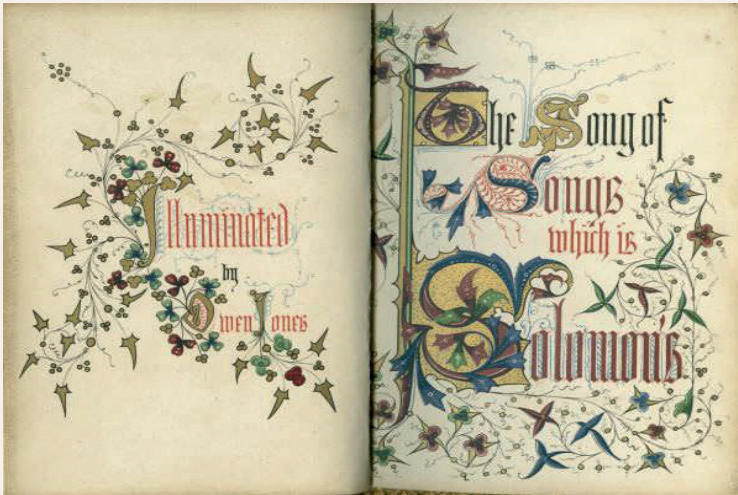 Illuminated
by
Owen Jones
The Song of
Songs
which is
Solomon's